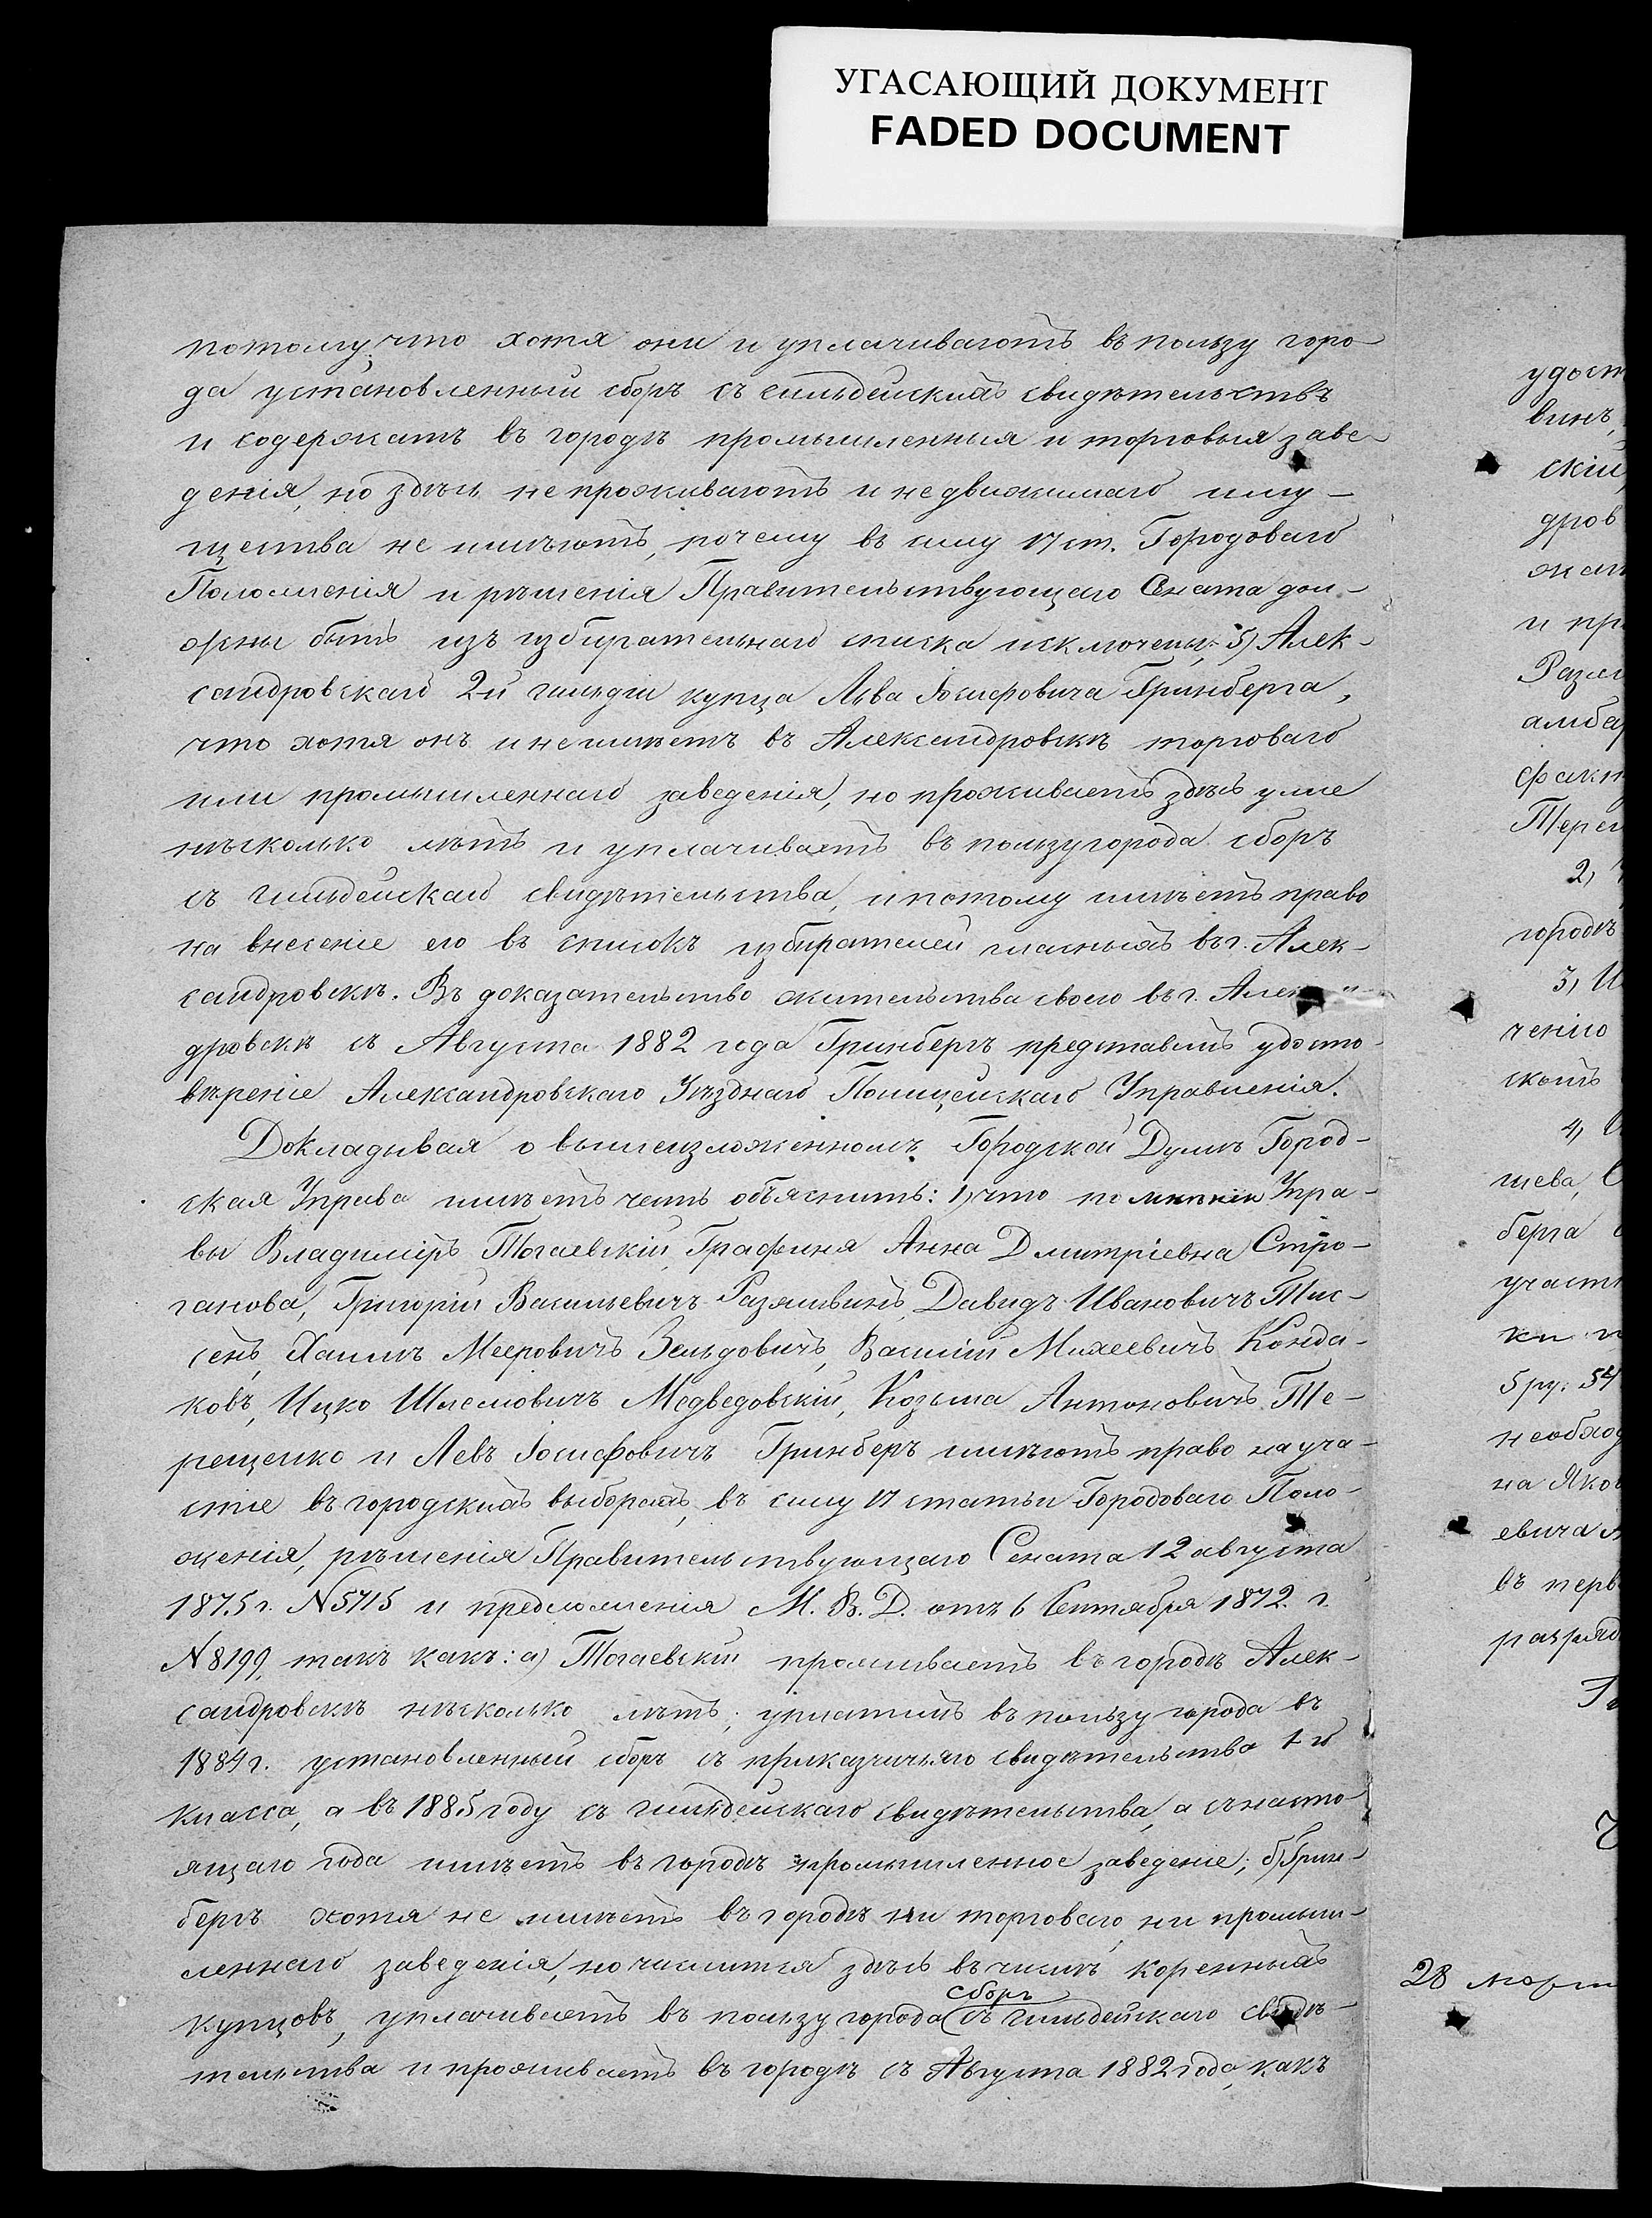 УГАСАЮЩИЙ ДОКУМЕНТ
FADED DOCUMENT
потому что хотя они и уплачиваютъ въ пользу горо-
да установленный сборъ съ гильдейскихъ свидѣтельствъ
и содержатъ въ городѣ промышленныя и торговыя заве-
денія, но здѣсь не проживаютъ и недвижимаго иму-
щества не имѣютъ, почему въ силу 17 ст. Городоваго
Положенія и рѣшенія Правительствующаго Сената дол-
жны быть изъ избирательнаго списка исключены; 5) Алек-
сандровскаго 2-й гильдіи купца Льва Іосифовича Гринберга,
что хотя онъ и не имѣетъ въ Александровскѣ торговаго
или промышленнаго заведенія, но проживаетъ здѣсь уже
нѣсколько лѣтъ и уплачиваетъ въ пользу города сборъ
съ гильдейскаго свидѣтельства, и потому имѣетъ право
на внесеніе его въ списокъ избирателей гласныхъ въ г. Алек-
сандровскѣ. Въ доказательство жительства своего въ г. Алексан-
дровскѣ съ Августа 1882 года Гринбергъ представилъ удосто-
вѣреніе Александровскаго Уѣзднаго Полицейскаго Управленія.
Докладывая о вышеизложенномъ Городской Думѣ Город-
ская Управа имѣетъ честь объяснить: 1) что по мнѣнію Упра-
вы Владиміръ Тогаевскій, Графиня Анна Дмитріевна Стро-
ганова, Григорій Васильевичъ Разливинъ, Давидъ Ивановичъ Тис-
сенъ, Хаимъ Мееровичъ Зельдовичъ, Василій Михеевичъ Конда-
ковъ, Ицко Шлемовичъ Медведовскій, Козьма Антоновичъ Те-
рещенко и Левъ Іосифовичъ Гринберъ имѣютъ право на уча-
стіе въ городскихъ выборахъ, въ силу 17 статьи Городоваго Поло-
женія, рѣшенія Правительствующаго Сената 12 августа
1875 г. N 5715 и предложенія М. В. Д. отъ 6 Сентября 1872. г.
N 8199, такъ какъ: а) Тогаевскій проживаетъ въ городѣ Алек-
сандровскѣ нѣсколько лѣтъ; уплатилъ въ пользу города въ
1884 г. установленный сборъ съ приказчичьяго свидѣтельства 1 й
класса, а въ 1885 году съ гильдейскаго свидѣтельства, а съ насто-
ящаго года имѣетъ въ городѣ промышленное заведеніе; б) Грин-
бергъ хотя не имѣетъ въ городѣ ни торговаго, ни промыш-
леннаго заведенія, но числится здѣсь въ числѣ коренныхъ
купцовъ, уплачиваетъ въ пользу города сборъ съ гильдейскаго свидѣ-
тельства и проживаетъ въ городѣ съ Августа 1882 года, какъ
удост
винъ,
скій,
дров
жат
и пр
Разли
амба
факт
Терещ
2,
городѣ
3, И
ченію
скотъ
4,
шева, С
берга
участ
ки
5 ру. 54
необход
на Яков
евича
въ перв
разряд
28 март